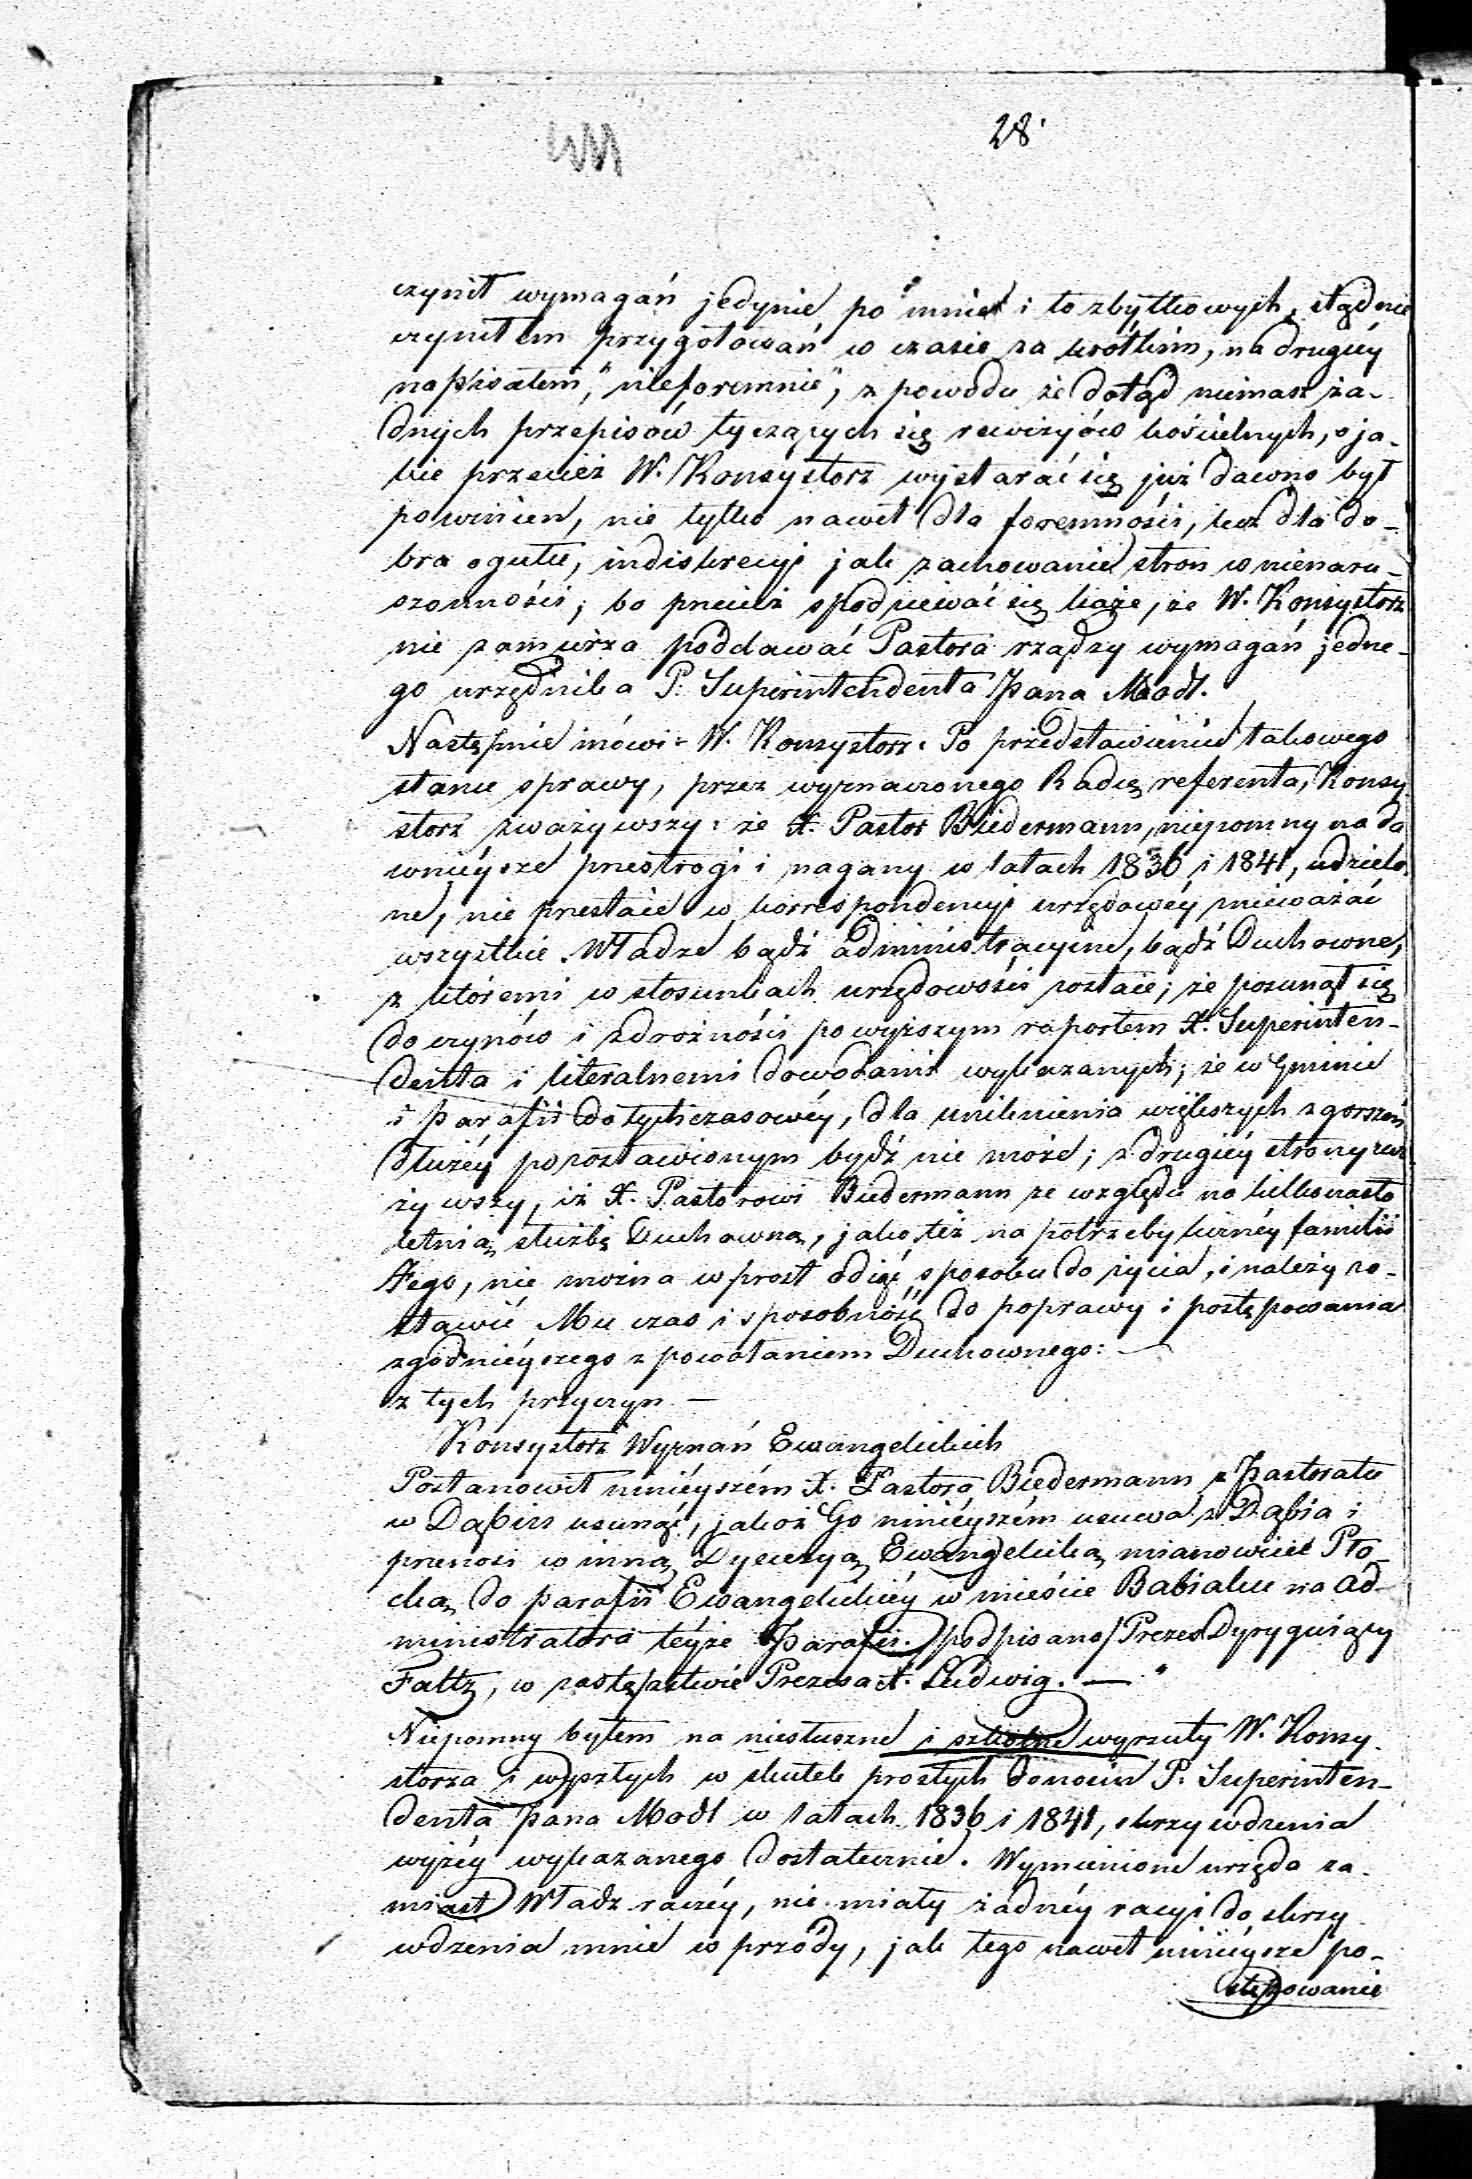 28.
czynił wymagań jedynie po mnie i to zbytkowych, stąd nie
czyniłem przygotowań w czasie za krótkim, na drugiéy
napisałem, "nieforemnie", z powodu że dotąd niemasz ża-
dnych przepisów tyczących się rewizyów kościelnych, o ja-
kie przecież W. Konsystorz wystarać się już dawno był
powinien, nie tylko nawet dla foremności, lecz dla do-
bra ogułu, indiskrecyi jak zachowanie stron w nienaru-
szonności; bo przecież spodziewać się każe, że W. Konsystorz
nie zamierza poddawać Pastora rządzy wymagań jedne-
go urzędnika P. Superintendenta Pana Modl.
Następnie mówi W. Konsystorz: Po przedstawieniu takowego
stanu sprawy, przez wyznaczonego Radcę referenta, Konsy
storz zważywszy: że X. Pastor Biedermann, niepomny na da
wniéysze przestrogi i nagany w latach 1836 i 1841, udzielo-
ne, nie przestaie w korrespondencyi urzędowéy znieważać
wszystkie Władze bądź administracyine, bądź Duchowne,
z któremi w stosunkach urzędowości zostaie; że posunął się
do czynów i zdrożności powyższym raportem X. Superinten-
denta i literalnemi dowodami wykazanych; że w Gminie
i parafii dotychczasowéy, dla uniknienia większych zgorszeń
dłużéy pozostawionym bydź nie może; z drugiéy strony zwa
żywszy, iż X. Pastorowi Biedermann ze względu na kilkonasto
letnią służbę Duchowną, jako też na potrzeby licznéy familii
Jego, nie można wprost odiąć sposobu do życia, i należy zo-
stawić Mu czas i sposobność do poprawy i postępowania
zgodniéyszego z powołaniem Duchownego: —
z tych przyczyn —
Konsystorz Wyznań Ewangelickich
Postanowił niniéyszém X. Pastora Biedermann z Pastoratu
w Dąbiu usunąć, jakoż Go niniéyszém usuwa z Dąbia i
przenosi w inną Dyecezyą Ewangelicką mianowicie Pło-
cką do parafii Ewangelickiéy w mieście Babiaku na Ad-
ministratora téyże Parafii. /podpisano/ Prezes Dyryguiący
Faltz, w zastępstwie Prezesa X. Ludwig. —
Niepomny byłem na niesłuszne i szkolne wyrzuty W. Konsy-
storza i wyszłych w skutek prostych donosów P. Superinten-
denta Pana Modl w latach 1836 i 1841, skrzywdzenia
wyżéy wykazanego dostatecznie. Wymienione urzęda za-
miast Władz raczéy, nie miały żadnéy racyi do skrzy-
wdzenia mnie w przódy, jak tego nawet niniéysze po-
stępowanie